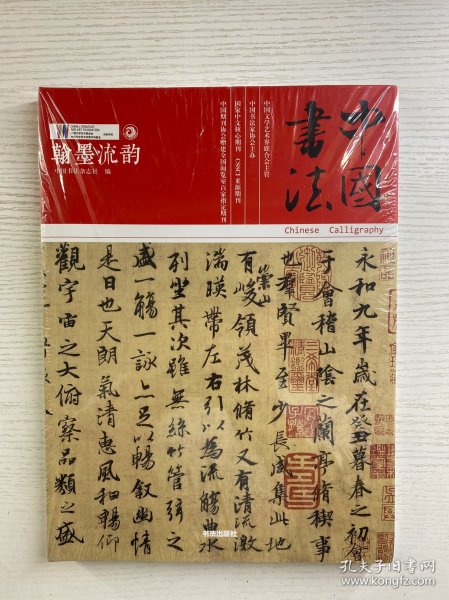 中國
書法
Chinese Calligraphy
中国文学艺术界联合会主管
中国书法家协会主办
国家中文核心期刊 CSSCI来源期刊
中国期刊协会赠建全国阅览室百家指定期刊
CHINA LITERATURE
AND ART FOUNDATION
翰墨流韵
中国书法杂志社 编
永和九年歲在癸丑暮春之初會
于會稽山陰之蘭亭脩禊事
也羣賢畢至少長咸集此地
有崇山峻領茂林脩竹又有清流激
湍暎帶左右引以為流觴曲水
列坐其次雖無絲竹管弦之
盛一觴一詠亦足以暢叙幽情
是日也天朗氣清惠風和暢仰
觀宇宙之大俯察品類之盛
书法出版社
孔夫子旧书网
kongfz.com